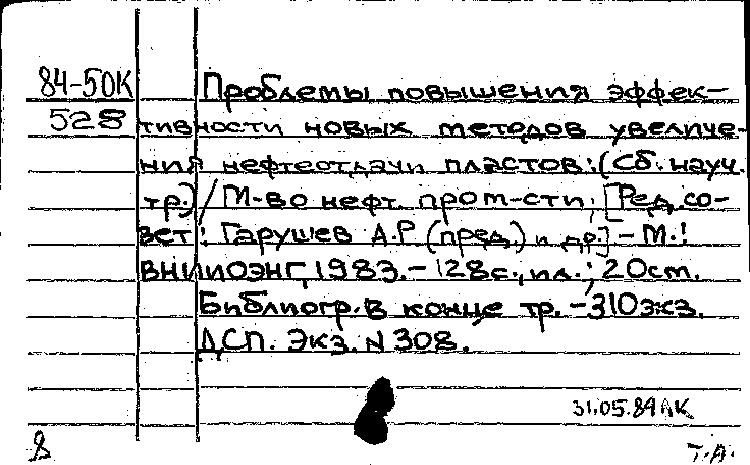 84-50К Проблемы повышения эффек-
528 тивности новых методов увеличе-
ния нефтеотдачи пластов: (Сб. науч.
тр.) / М-во нефт. пром-сти; [Ред. со-
вет: Гарушев А.Р. (пред.) и др.] - М.:
ВНИИОЭНГ, 1983. - 128с., ил.; 20cm.
Библиогр. в конце тр. - 310экз.
ДСП. Экз. N 308.
31.05.84 АК
8 Т.А.